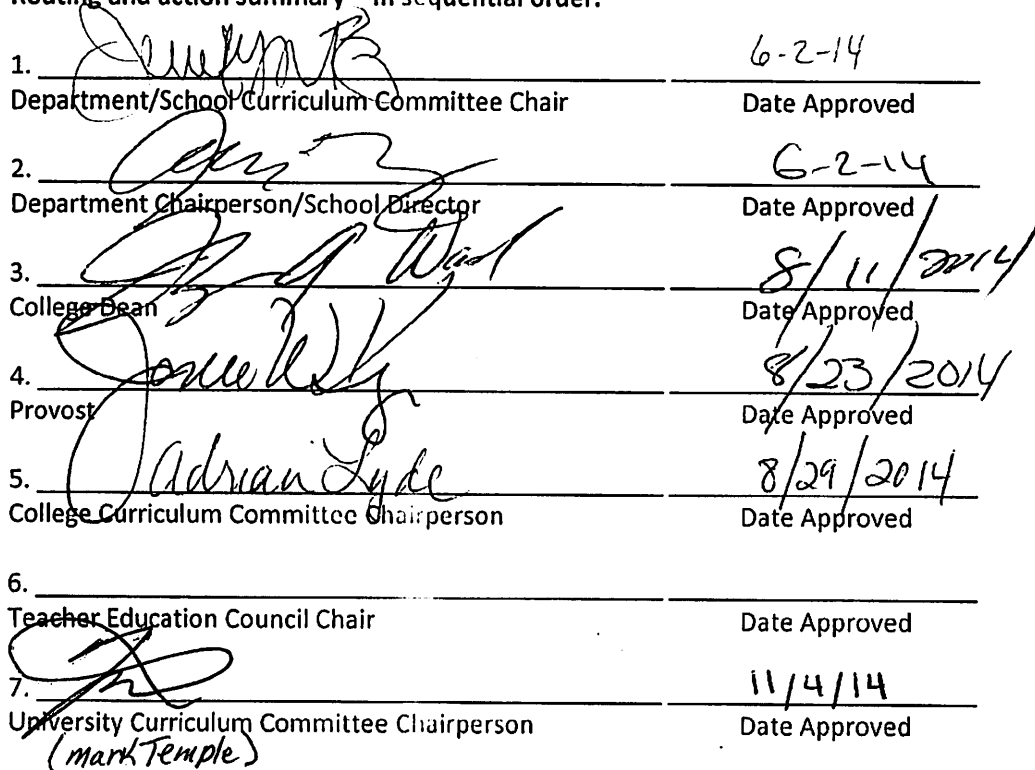 Routing and action summary – in sequential order:
1. 6-2-14
Department/School Curriculum Committee Chair Date Approved
2. 6-2-14
Department Chairperson/School Director Date Approved
3. 8/11/2014
College Dean Date Approved
4. 8/23/2014
Provost Date Approved
5. Adrian Lyde 8/29/2014
College Curriculum Committee Chairperson Date Approved
6.
Teacher Education Council Chair Date Approved
7. 11/4/14
University Curriculum Committee Chairperson Date Approved
(mark Temple)